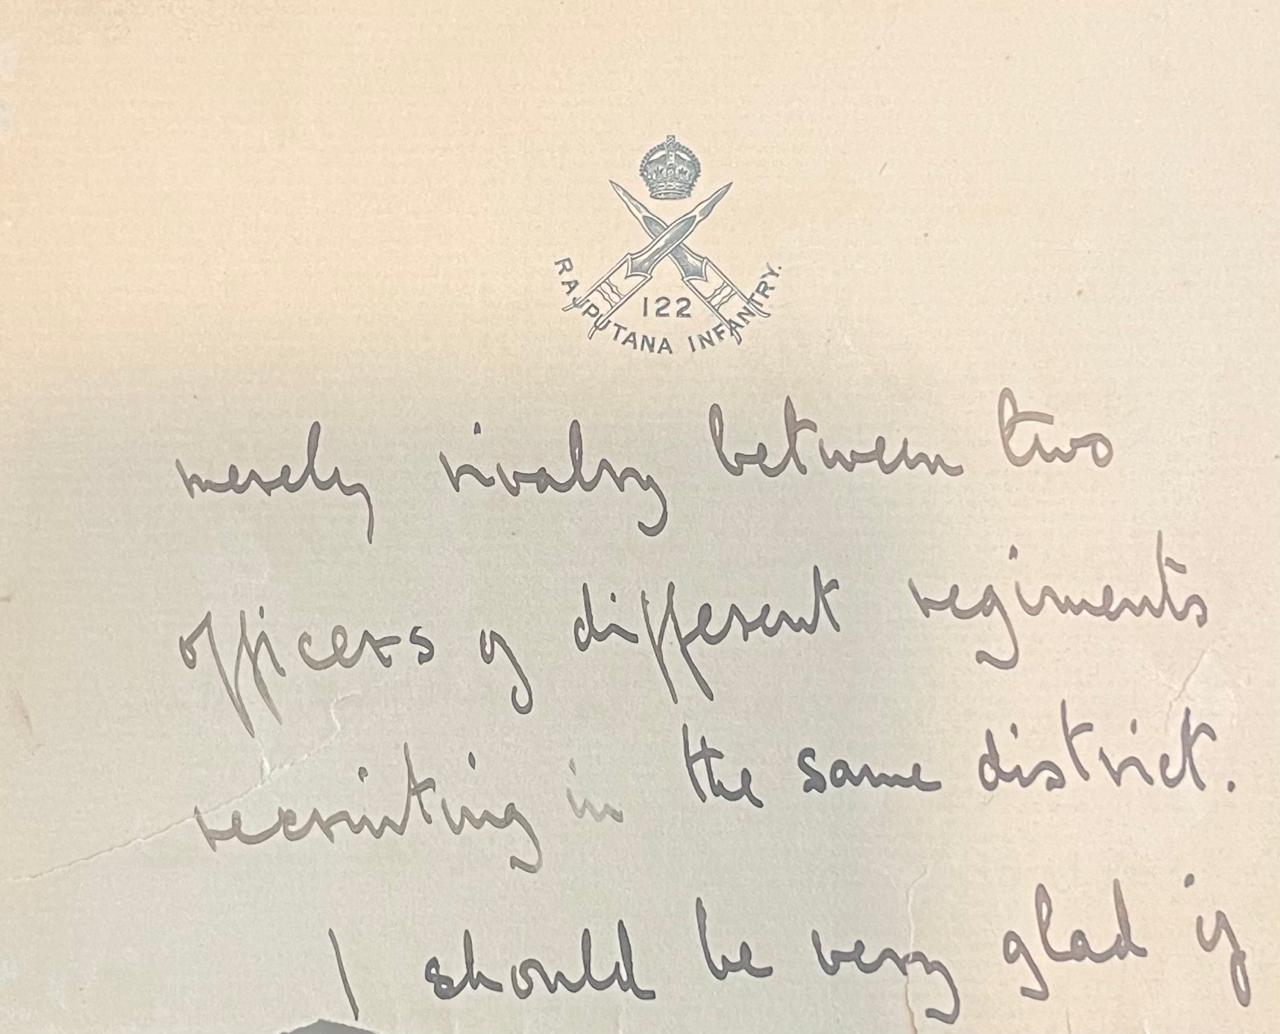 122
RAJPUTANA INFANTRY.
merely rivalry between two
officers of different regiments
recruiting in the same district.
I should be very glad if